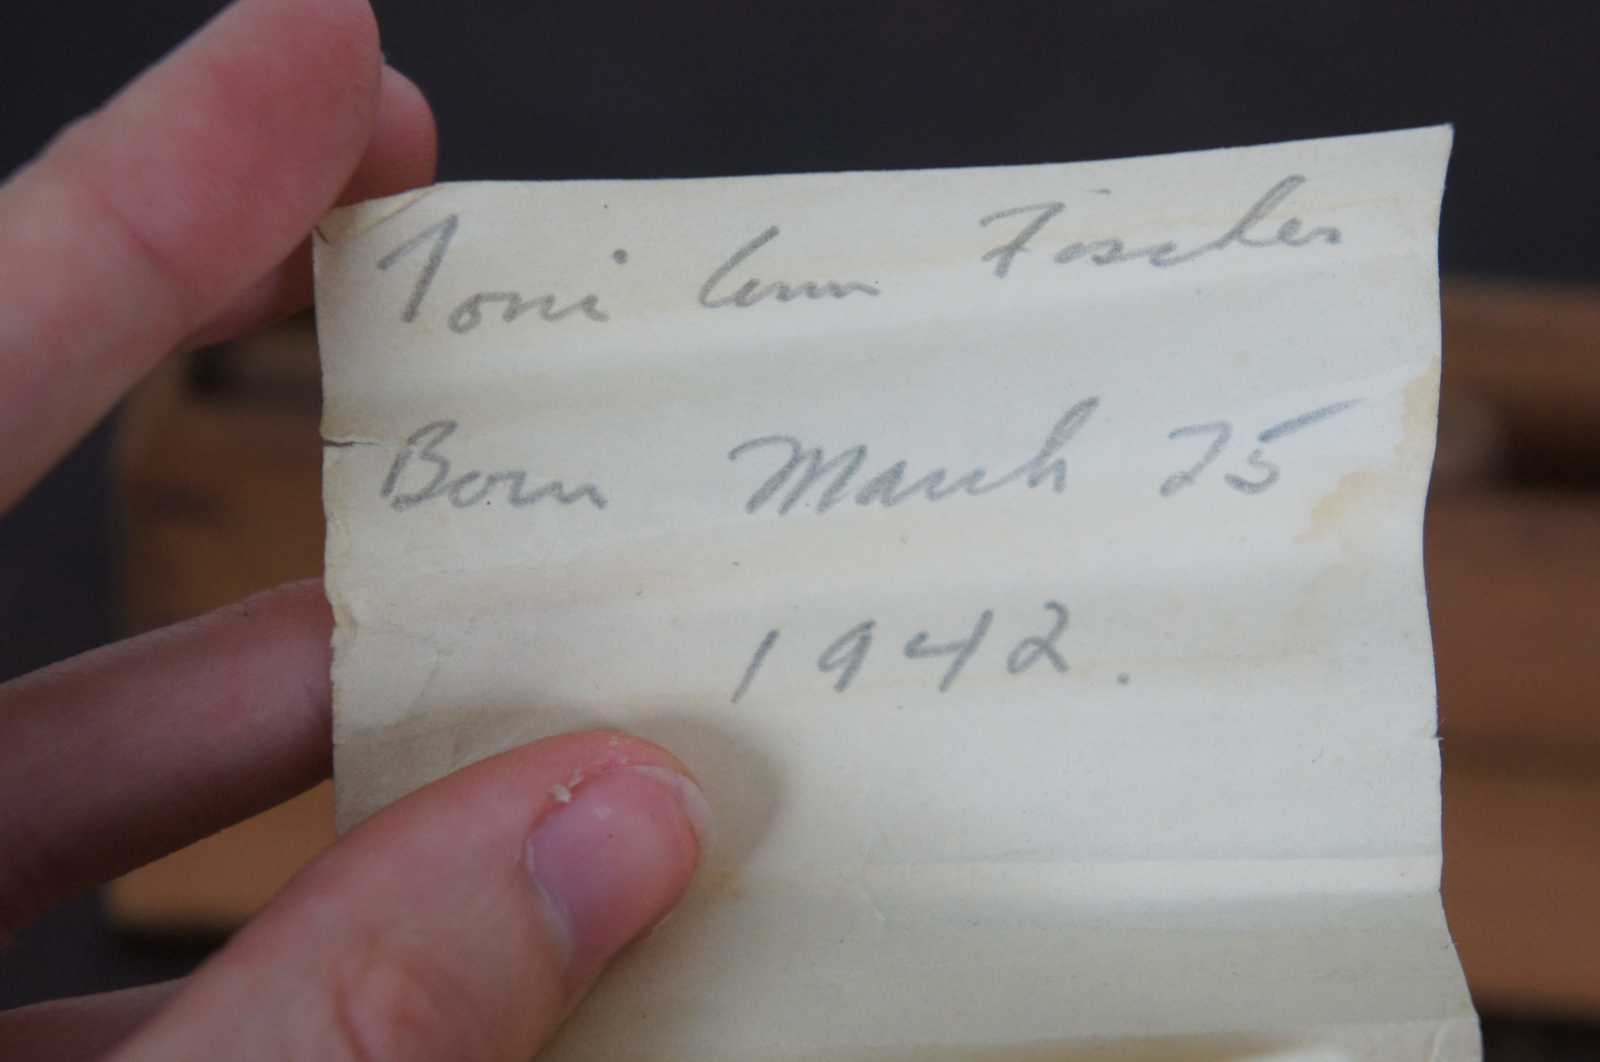 Toni Ann Fischer
Born March 25
1942.